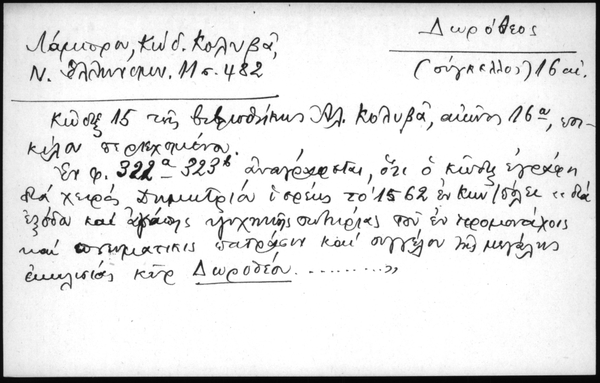 Λάμπρου, Κώδ. Κολυβᾶ,
Ν. Ἑλληνομν. 11 σ. 482
Δωρόθεος
(σύγκελλος) 16 αἰ.
Κῶδιξ 15 τῆς βιβλιοθήκης Ἀλ. Κολυβᾶ, αἰῶνος 16ου, ποι-
κίλου περιεχομένου.
Ἐν φ. 322α - 323β ἀναγράφεται, ὅτι ὁ κῶδιξ ἐγράφη
διά χειρός Δημητρίου ἱερέως τό 1562 ἐν Κων/πόλει "διά
ἐξόδου καί ἀγάπης ψυχικῆς σωτηρίας τοῦ ἐν ἱερομονάχοις
καί πνευματικις πατράσιν καί συγγέλου τῆς μεγάλης
ἐκκλισιάς κῦρ Δωροθέου.........."